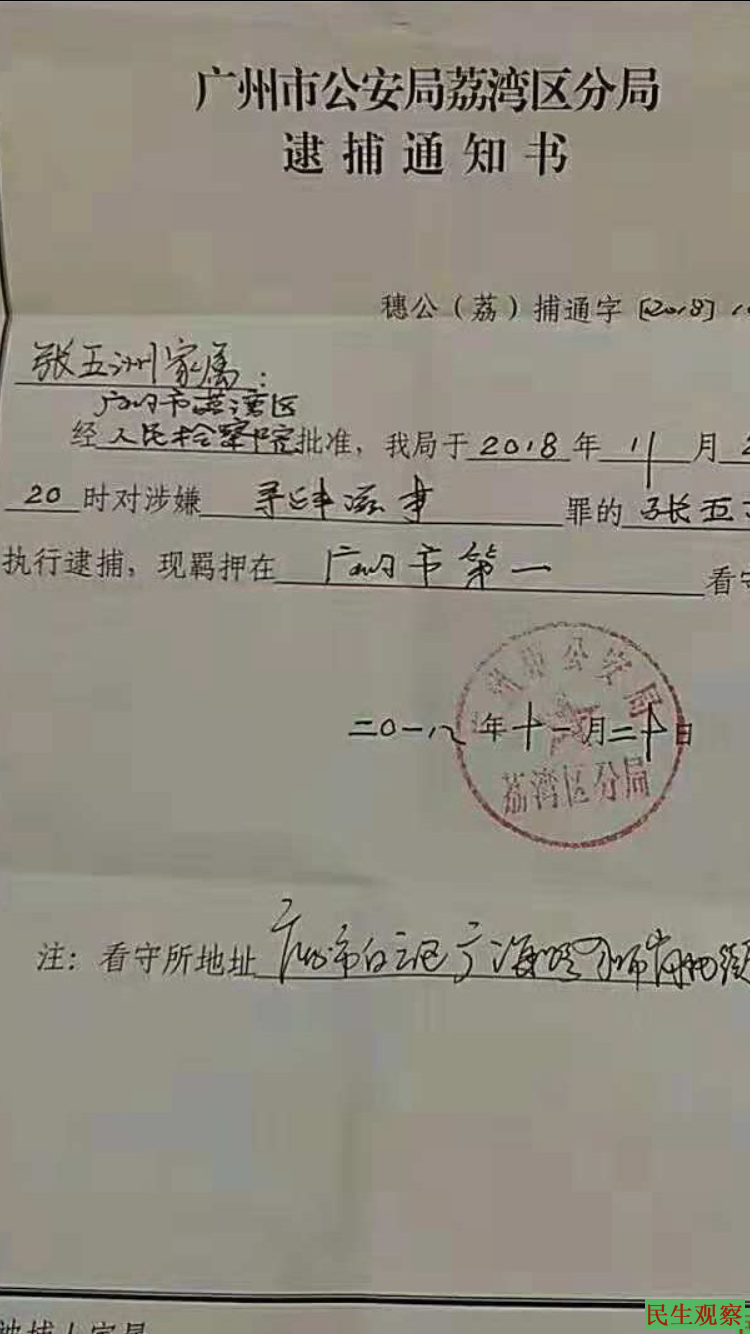 广州市公安局荔湾区分局
逮捕通知书
穗公（荔）捕通字〔2018〕1
张五洲家属：
广州市荔湾区
经人民检察院批准，我局于2018年11月2
20时对涉嫌寻衅滋事罪的张五
执行逮捕，现羁押在广州市第一看守
广州市公安局
二〇一八年十一月二十日
荔湾区分局
注：看守所地址广州市白云区广海路
被捕人家属
民生观察